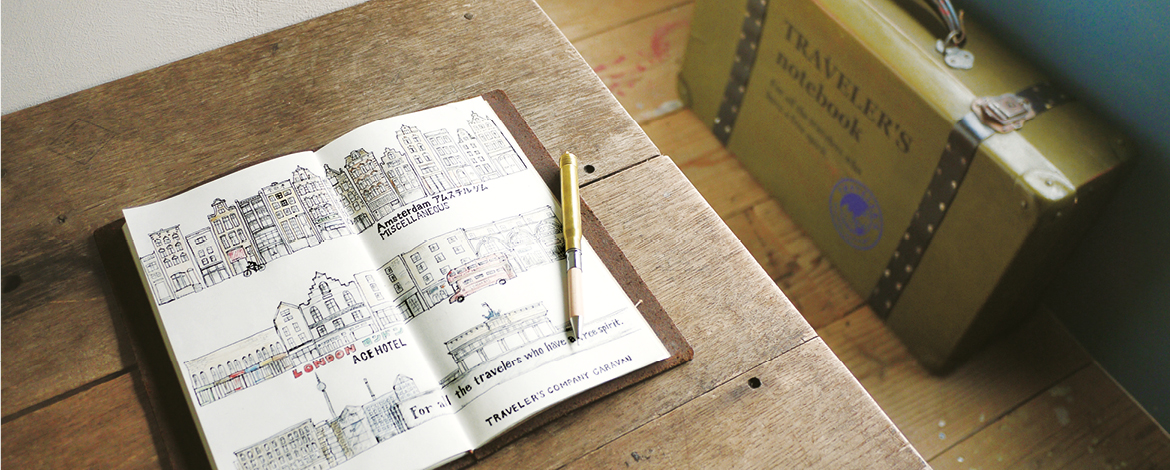 Amsterdam アムステルダム
MISCELLANEOUS
LONDON
ACE HOTEL
For all the travelers who have a free spirit.
TRAVELER'S COMPANY CARAVAN
TRAVELER'S
notebook
For all the travelers who
have a free spirit